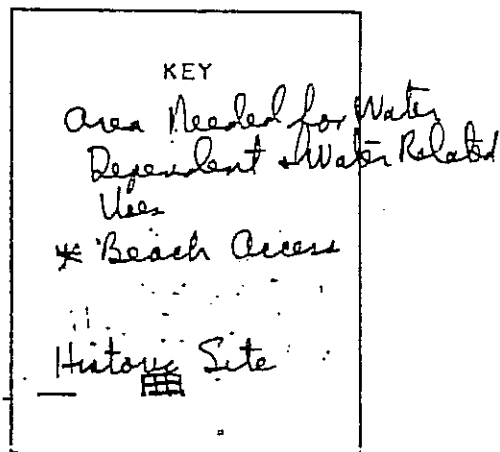 KEY
Area Needed for Water
Dependent + Water Related
Uses
* Beach Access
Historic Site